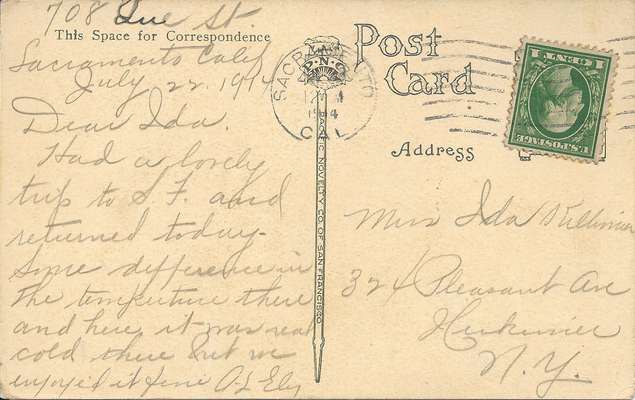 708 Que St.
This Space for Correspondence
Sacramento Calif
July 22, 1914
Dear Ida.
Had a lovely
trip to S.F. and
returned today-
Some difference in
the temperture there
and here, it was real
cold there but we
enjoyed it fine
SACRAMENTO
1914
CAL
P.N.C.
PACIFIC NOVELTY CO. OF SAN FRANCISCO
Post
Card
Address
1 CENT 1
U.S. POSTAGE
Miss Ida
324 Pleasant Ave
Herkimer
N.Y.